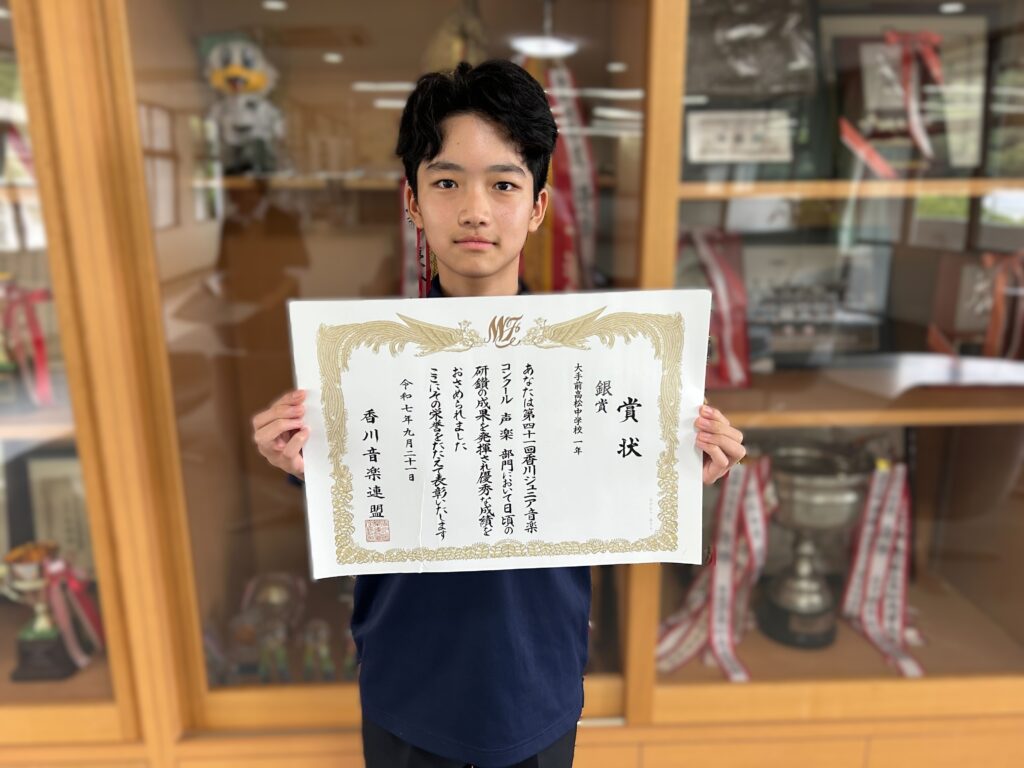 賞状
銀賞
大手前高松中学校 一年
あなたは第四十一回香川ジュニア音楽
コンクール 声楽 部門において日頃の
研鑽の成果を発揮され優秀な成績を
おさめられました
ここにその栄誉をたたえて表彰いたします
令和七年九月二十一日
香川音楽連盟